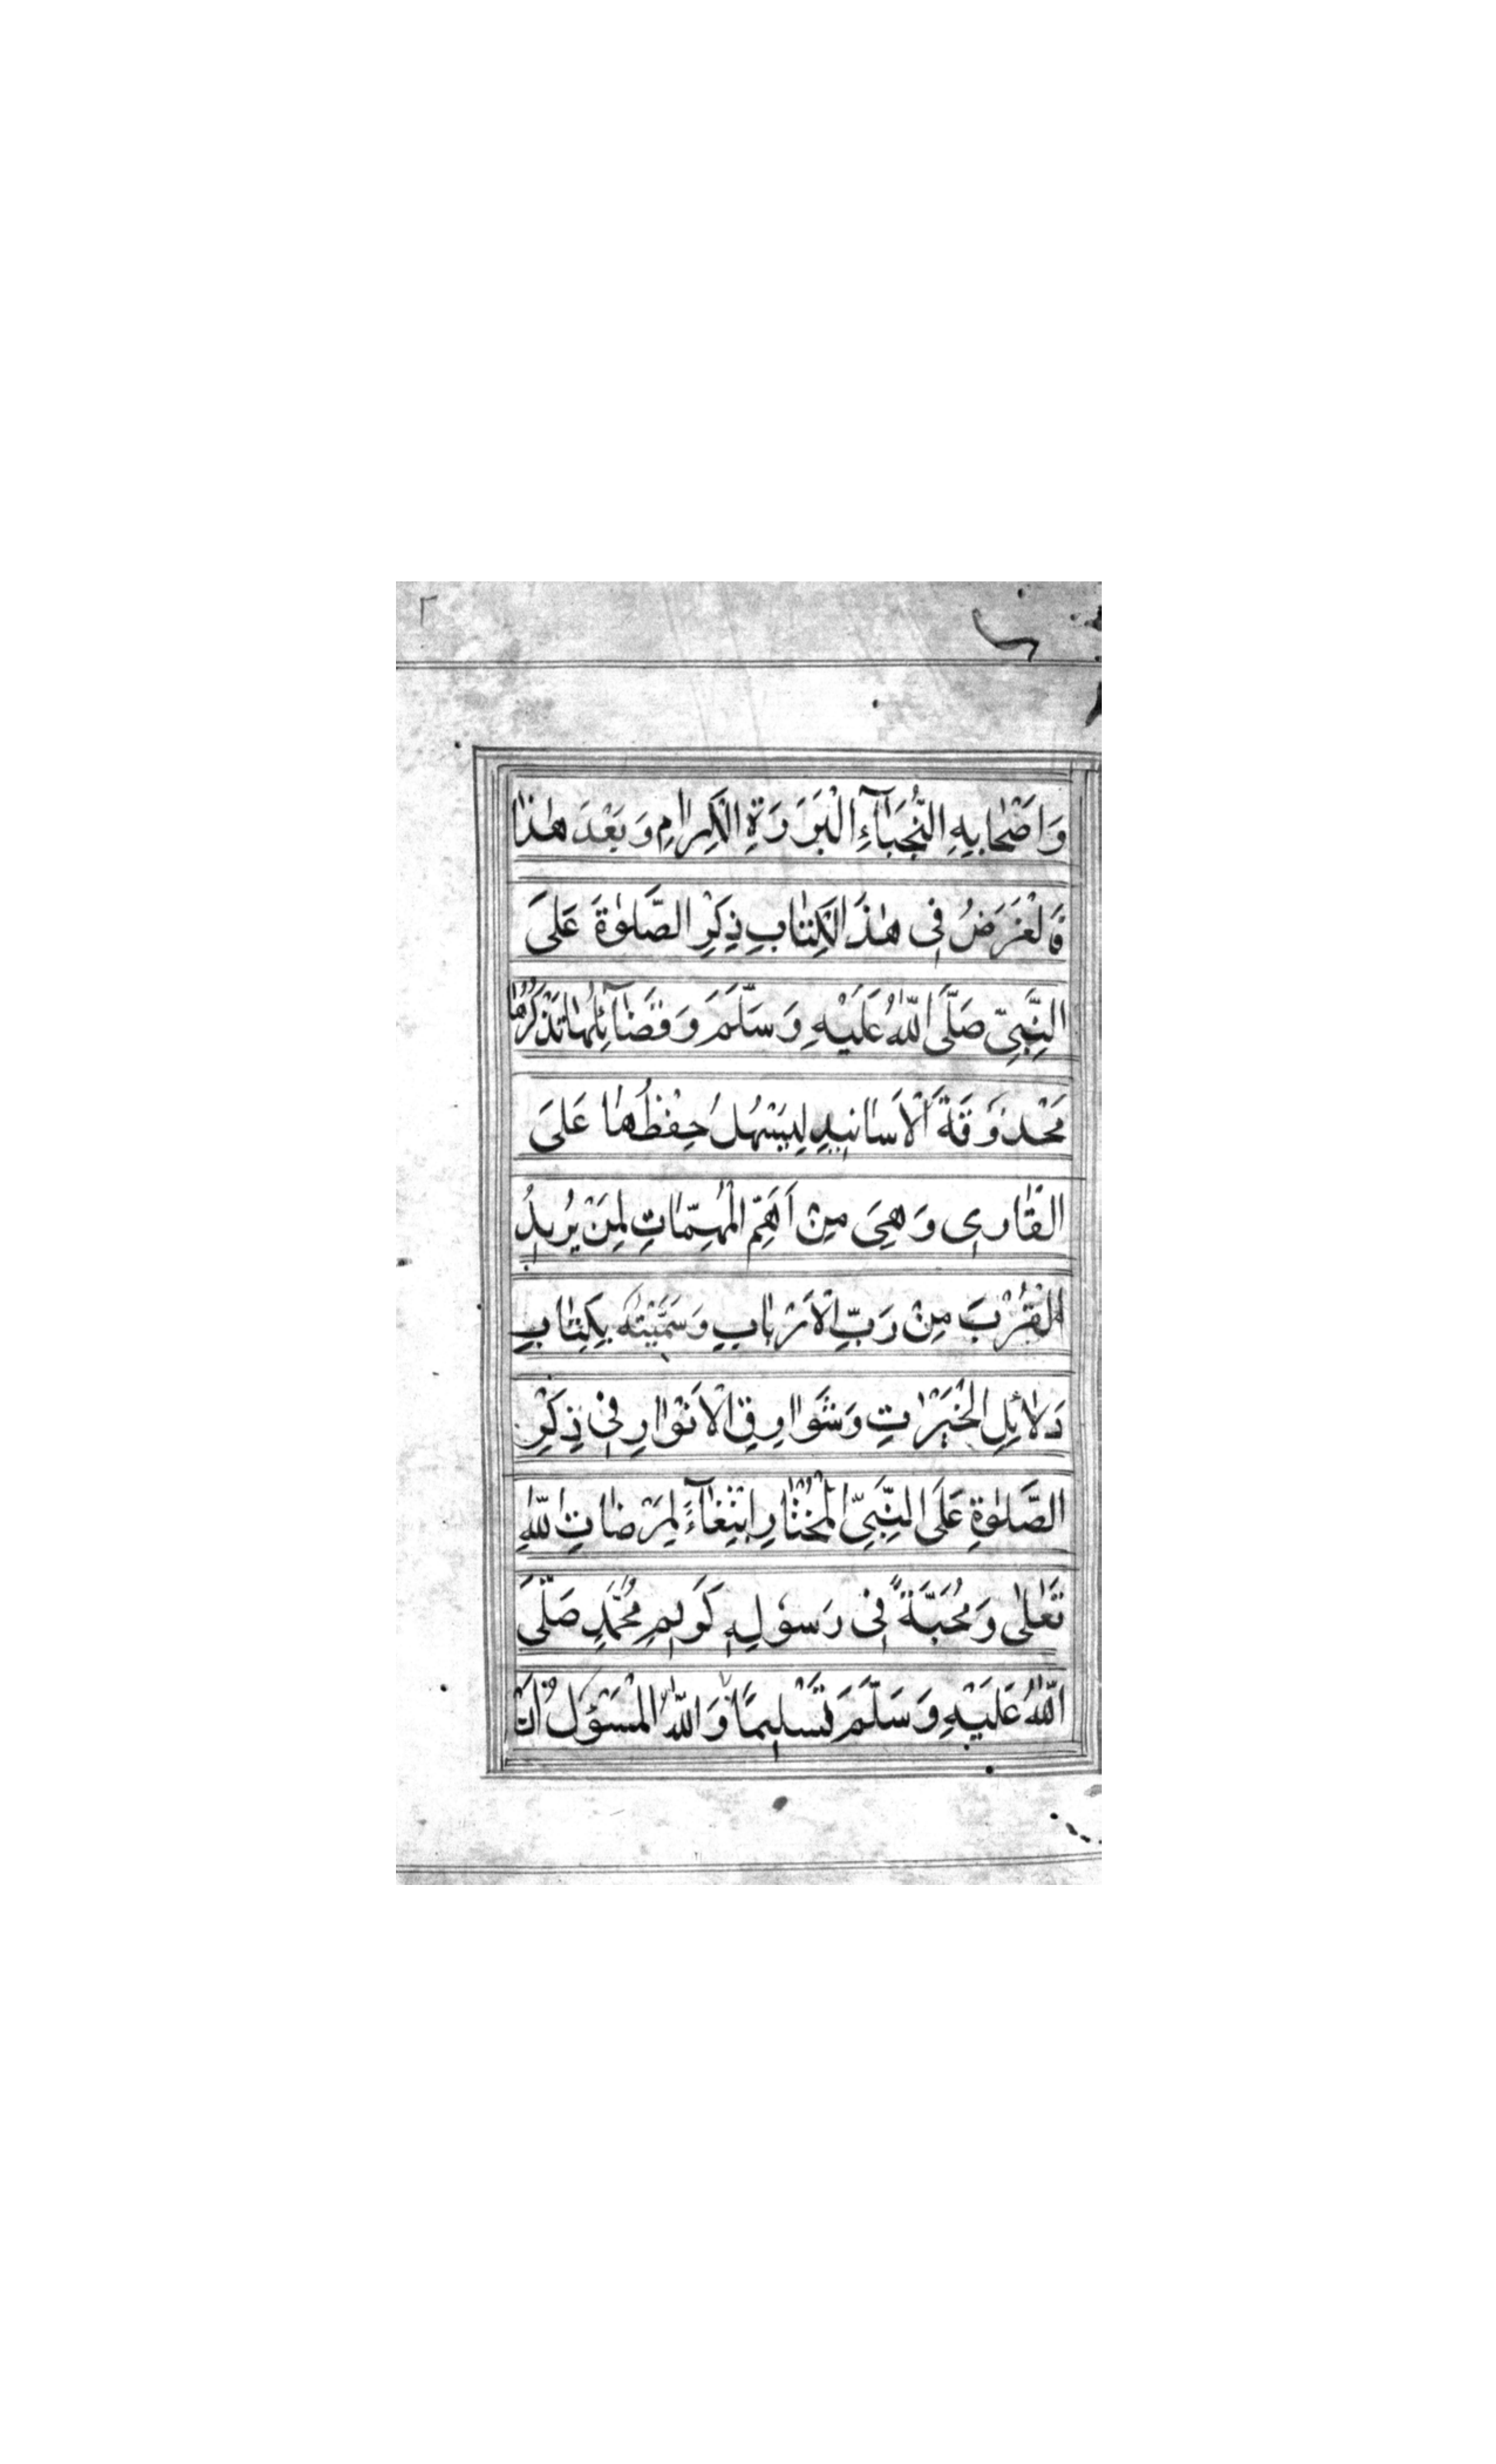 ٢
وَاَصْحَابِهِ النُّجَبَآءِ الْبَرَرَةِ الْكِرَامِ وَبَعْدَ هٰذَا
فَالْغَرَضُ فِى هٰذَ الْكِتَابِ ذِكْرِ الصَّلٰوةَ عَلَى
النَّبِىِّ صَلَّى اللّٰهُ عَلَيْهِ وَسَلَّمَ وَفَضَآئِلُهَا نَذْكُرُهَا
مَحْذُوفَةَ الْاَسَانِيدِ لِيَسْهُلَ حِفْظُهَا عَلَى
الْقَارِى وَهِىَ مِنْ اَهَمِّ الْمُهِمَّاتِ لِمَنْ يُرِيدُ
الْقُرْبَ مِنْ رَبِّ الْاَرْبَابِ وَسَمَّيْتُهُ بِكِتَابِ
دَلَائِلِ الْخَيْرَاتِ وَشَوَارِقِ الْاَنْوَارِ فِى ذِكْرِ
الصَّلٰوةِ عَلَى النَّبِىِّ الْمُخْتَارِ ابْتِغَآءً لِمَرْضَاتِ اللّٰهِ
تَعَالٰى وَمُحَبَّةً فِى رَسُولِهِ كَرِيمِ مُحَمَّدٍ صَلَّى
اللّٰهُ عَلَيْهِ وَسَلَّمَ تَسْلِيمًا وَاللّٰهُ الْمَسْؤُلُ اَنْ